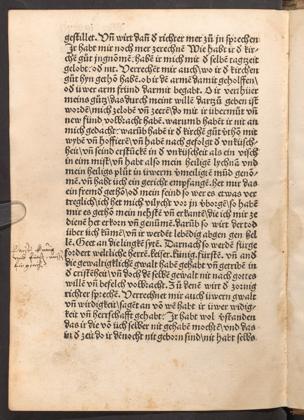 gestillet. Vn̄ wirt dan̄ d richter mer zů jn sprechen
Jr habt mir noch mer zerechnē Wie habt ir d kir-
chē gůt jngnomē: habt ir mich mir d selbē tagtzeit
gelobt: od nit. Verrechēt mir auch/wo ir d kirchen
gůt hyn gethō habt. ob ir dē armē damit geholffen/
od üwer arm fründ darmit begabt. D ir verhüer
meins gůtz/das durch meint willē dartzů geben ist
wordē/mich zelobē vn̄ zeerē/do mir ir übermůt vn̄
new fünd volbracht habt. warumb habēt ir nit an
mich gedacht: warūb habt ir d kirchē gůt v̄thō mit
wybē vn̄ hoffierē/vn̄ habt nach gefolgt d vnküsch-
heit/vn̄ seind ersticket in d vnküscheit als ein visch
in eim mist/vn̄ habt also mein heiligē lychnā vnd
mein heiligs plůt in üwerm vnseligtē mūd genō-
mē. vn̄ habt üch ein gericht empfangē. het mir das
ein fremd gethō/od mein feind so wer es etwas ver
treglich/ich het mich vilycht vor jn v̄borgē/so habt
mir es gethō mein nehstē vn̄ erkantē/die ich mir ze
dienē het erkorn vn̄ genūmē. darūb so wirt v̄ertod
über üch kumē/vn̄ ir werdēt lebēdig abgen gen hel
lē. Geet an die lingkē sytē. Darnach so werdē fürge
fordert weltliche herrē. keiser. künig. fürstē. vn̄ and
die gewaltigkliche gwalt habē gehabt vn̄ getribē in
d cristēheit/vn̄ doch dē selbē gewalt nit nach gottes
willē vn̄ befelch volbracht. Zů denē wirt d zornig
richter sprechē. Verrechnet mir auch üwern gwalt
vn̄ würdigkeit/sagēt an vō wē habt ir üwer widig-
keit vn̄ herrschafft gehabt: Jr habt wol v̄standen
das ir die vō üch selber nit gehabē mochtē/vnd das
in d zeit/do ir dēnocht nit geborn sind/nit habt selbs